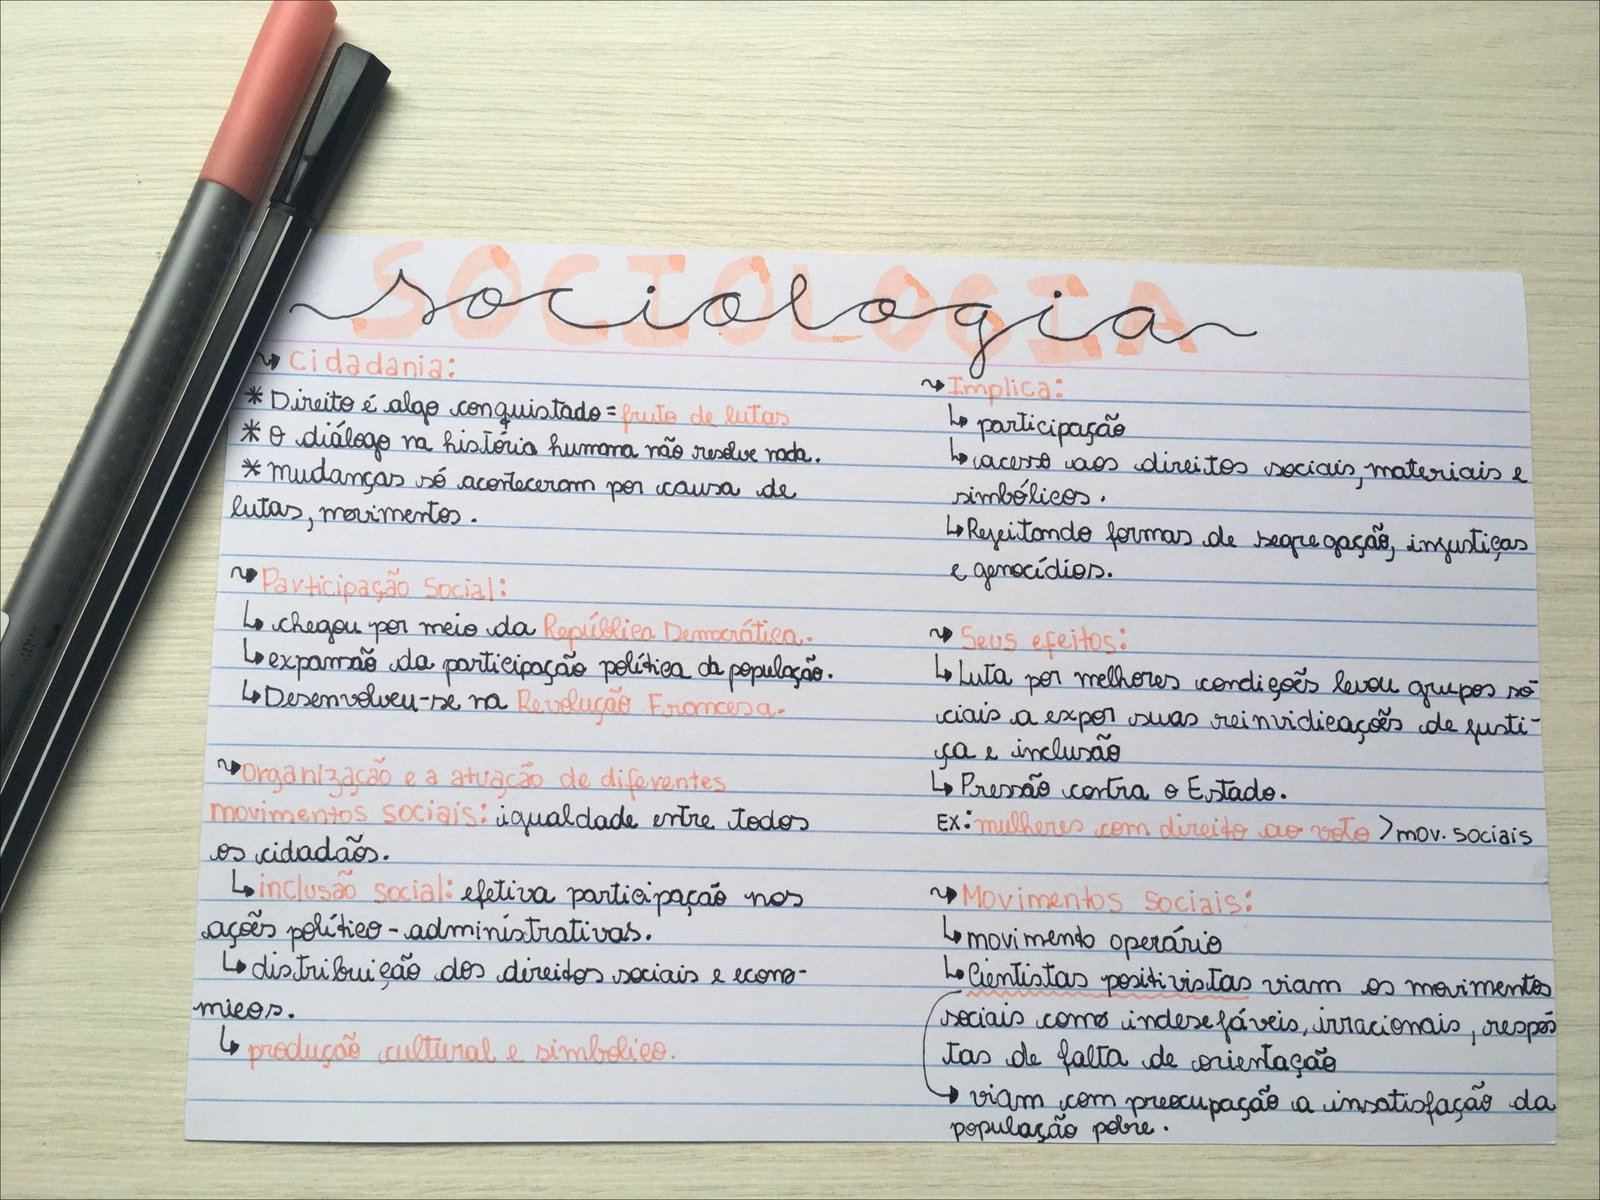 SOCIOLOGIA
sociologia
Cidadania:
* Direito é algo conquistado = fruto de lutas
* O diálogo na história humana não resolve nada.
* Mudanças só aconteceram por causa de
lutas, movimentos.
Participação Social:
↳ chegou por meio da República Democrática.
↳ expansão da participação política da população.
↳ Desenvolveu-se na Revolução Francesa.
Organização e a atuação de diferentes
movimentos sociais: igualdade entre todos
os cidadãos.
↳ inclusão social: efetiva participação nas
ações político-administrativas.
↳ distribuição dos direitos sociais e econo-
micos.
↳ produção cultural e simbólico.
Implica:
↳ participação
↳ acesso aos direitos sociais, materiais e
simbólicos.
↳ Rejeitando formas de segregação, injustiças
e genocídios.
Seus efeitos:
↳ Luta por melhores condições levou grupos so-
ciais a expor suas reinvidicações de justi-
ça e inclusão
↳ Pressão contra o Estado.
EX: mulheres com direito ao voto > mov. sociais
Movimentos Sociais:
↳ movimento operário
↳ Cientistas positivistas viam os movimentos
sociais como indesefáveis, irracionais, respos
tas de falta de orientação
→ viam com preocupação a insatisfação da
população pobre.